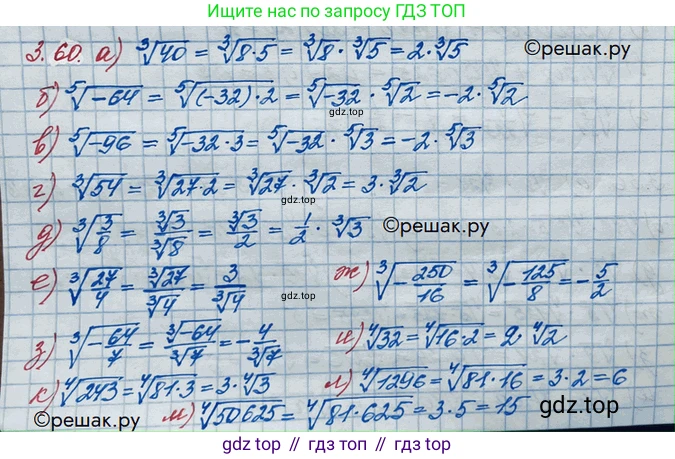 Ищите нас по запросу ГДЗ ТОП
3.60. а) ∛40 = ∛(8·5) = ∛8 · ∛5 = 2·∛5
©решак.ру
б) ⁵√−64 = ⁵√((−32)·2) = ⁵√−32 · ⁵√2 = −2·⁵√2
gdz.top
в) ⁵√−96 = ⁵√(−32·3) = ⁵√−32 · ⁵√3 = −2·⁵√3
г) ∛54 = ∛(27·2) = ∛27 · ∛2 = 3·∛2
gdz.top
д) ∛(3/8) = ∛3/∛8 = ∛3/2 = 1/2 · ∛3
©решак.ру
е) ∛(27/4) = ∛27/∛4 = 3/∛4
gdz.top
ж) ∛(−250/16) = ∛(−125/8) = −5/2
з) ∛(−64/7) = ∛−64/∛7 = −4/∛7
и) ⁴√32 = ⁴√(16·2) = 2·⁴√2
к) ⁴√243 = ⁴√(81·3) = 3·⁴√3
л) ⁴√1296 = ⁴√(81·16) = 3·2 = 6
©решак.ру
м) ⁴√50625 = ⁴√(81·625) = 3·5 = 15
gdz top
gdz.top // гдз.топ // гдз.top